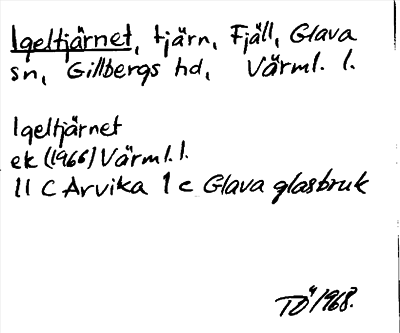 Igeltjärnet, tjärn, Fjäll, Glava
sn, Gillbergs hd, Värml. l.
Igeltjärnet
ek (1966) Värml. l.
11 C Arvika 1 c Glava glasbruk
TÖ 1968.